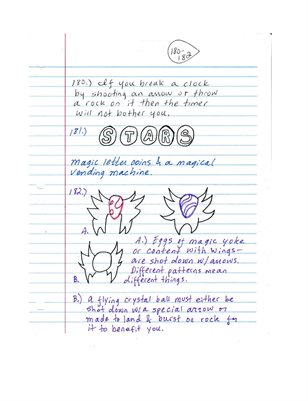 180-
182
180.) If you break a clock
by shooting an arrow or throw
a rock on it then the timer
will not bother you.
181.) STARS
magic letter coins & a magical
vending machine.
182.)
A.
A.) Eggs of magic yoke
or content with wings-
are shot down w/arrows.
Different patterns mean
B. different things.
B.) A flying crystal ball must either be
shot down w/a special arrow or
made to land & burst or rock for
it to benefit you.